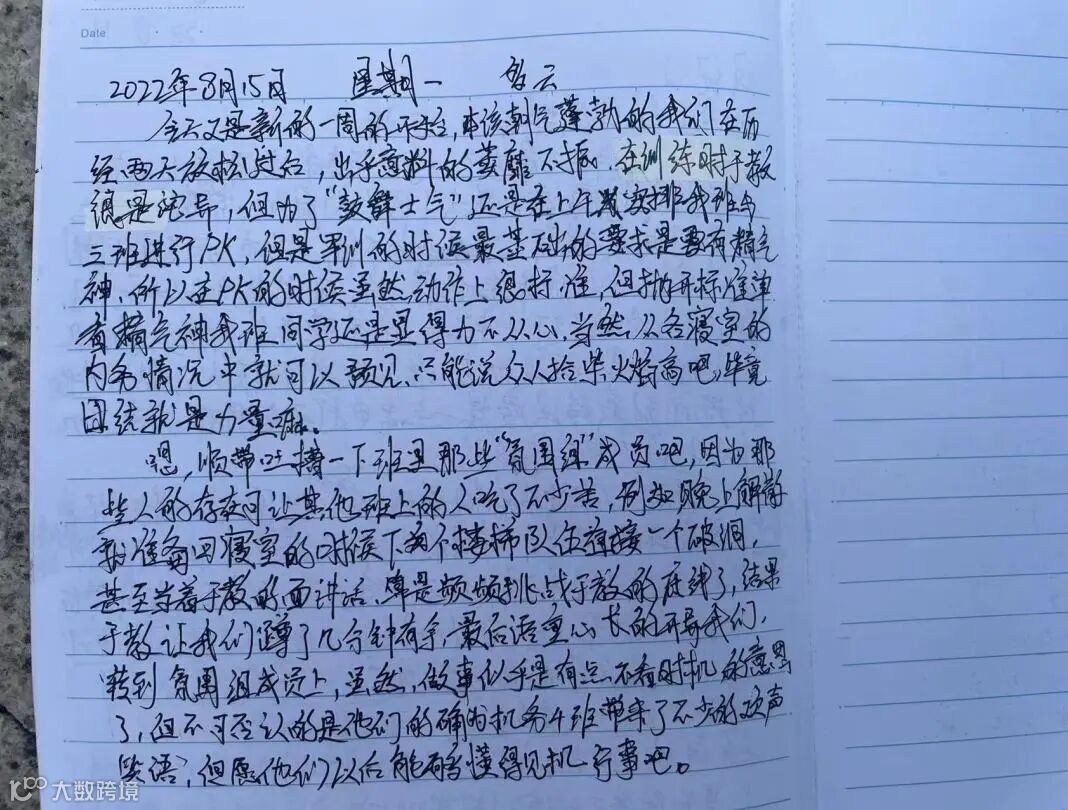 Date
2022年8月15日 星期一 多云
今天又是新的一周的开始，本该朝气蓬勃的我们在历
经两天放松过后，出乎意料的萎靡不振。在训练时于教
很是诧异，但为了“鼓舞士气”还是在上午安排我班与
三班进行PK，但是军训的时候最基础的要求是要有精气
神，所以在PK的时候虽然动作上很标准，但抛开标准单
看精气神我班同学还是显得力不从心，当然，从各寝室的
内务情况中就可以预见，只能说众人拾柴火焰高吧，毕竟
团结就是力量嘛。
嗯，顺带吐槽一下班里那些“氛围组”成员吧，因为那
些人的存在可让其他班上的人吃了不少苦，例如晚上解散
准备回寝室的时候下个楼梯队伍直接一个破洞，
甚至当着于教的面讲话，算是频频挑战于教的底线了，结果
于教让我们蹲了几分钟有余，最后语重心长的开导我们，
转到氛围组成员上，虽然，做事似乎是有点不看时机的意思
了，但不可否认的是他们的确为机务4班带来了不少的欢声
笑语，但愿他们以后能够懂得见机行事吧。
大数跨境